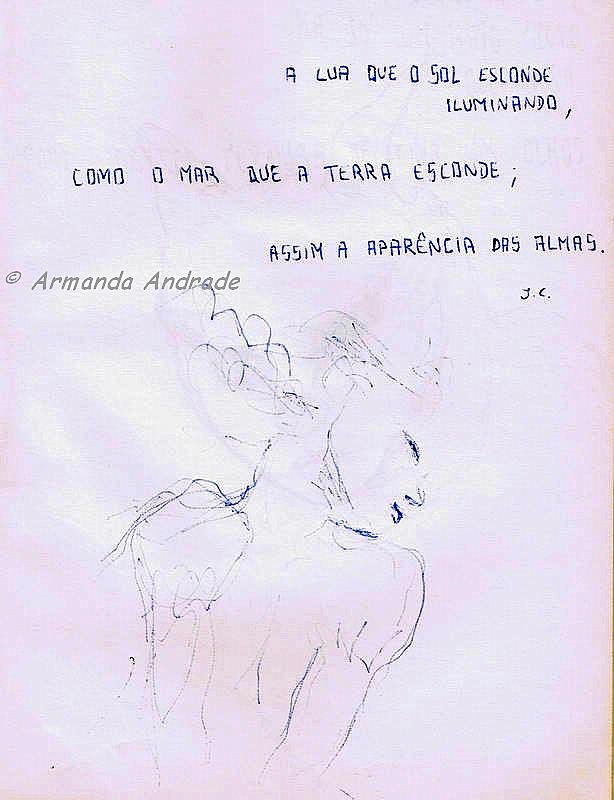 A LUA QUE O SOL ESCONDE
ILUMINANDO,
COMO O MAR QUE A TERRA ESCONDE;
ASSIM A APARÊNCIA DAS ALMAS.
© Armanda Andrade
J.C.